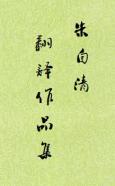 朱自清
翻译作品集